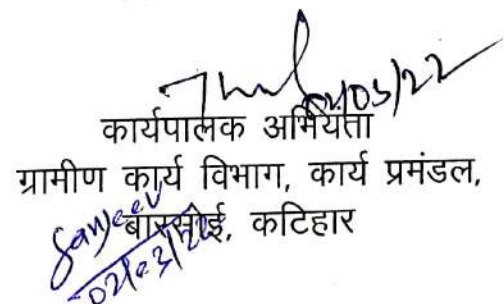 02/03/22
कार्यपालक अभियंता
ग्रामीण कार्य विभाग, कार्य प्रमंडल,
बारसोई, कटिहार
Sanjeev
02/03/22